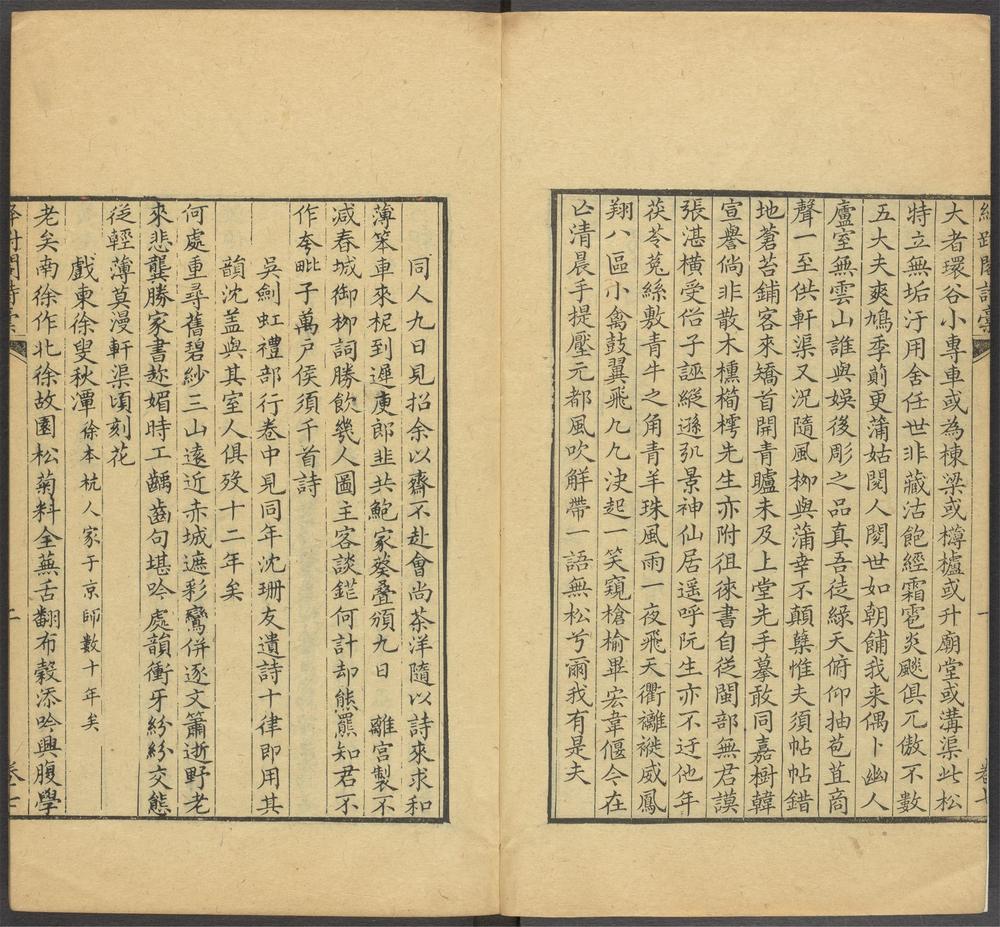 大者環谷小專車或為棟梁或樽櫨或升廟堂或溝渠此松
特立無垢汙用舍任世非藏沽飽經霜雹炎飇俱兀傲不數
五大夫爽鳩季萴更蒲姑閱人閱世如朝餔我来偶卜幽人
廬室無雲山誰與娛後彫之品真吾徒綠天俯仰抽苞苴商
聲一至供軒渠又況隨風柳與蒲幸不顛櫱惟夫須帖帖錯
地蒼苔鋪客來矯首開青矑未及上堂先手摹敢同嘉樹韓
宣譽倘非散木櫄櫄樗先生亦附徂徠書自従閩部無君謨
張湛橫受俗子誣縱遜弘景神仙居遥呼阮生亦不迂他年
茯苓菟絲敷青牛之角青羊珠風雨一夜飛天衢褵褷威鳳
翔八區小禽鼓翼飛几几決起一笑窺槍榆畢宏韋偃今在
亡清晨手提壓元都風吹解帶一語無松兮爾我有是夫
同人九日見招余以齋不赴會尚茶洋隨以詩來求和
薄笨車來柅到遲庾郎韭共鮑家葵叠頒九日 離宮製不
減春城御柳詞勝飲幾人圖主客談鎈何計却熊羆知君不
作夲毗子萬户侯須千首詩
吳劍虹禮部行卷中見同年沈珊友遺詩十律即用其
韻沈盖與其室人俱歿十二年矣
何處重尋舊碧紗三山遠近赤城遮彩鸞併逐文簫逝野老
來悲龔勝家書趂媚時工齲齒句堪吟處韻衝牙紛紛交態
従輕薄莫漫軒渠頃刻花
戲柬徐叟秋潭徐本杭人家于京師數十年矣
老矣南徐作北徐故園松菊料全蕪舌翻布穀添吟興腹學
二
卷七